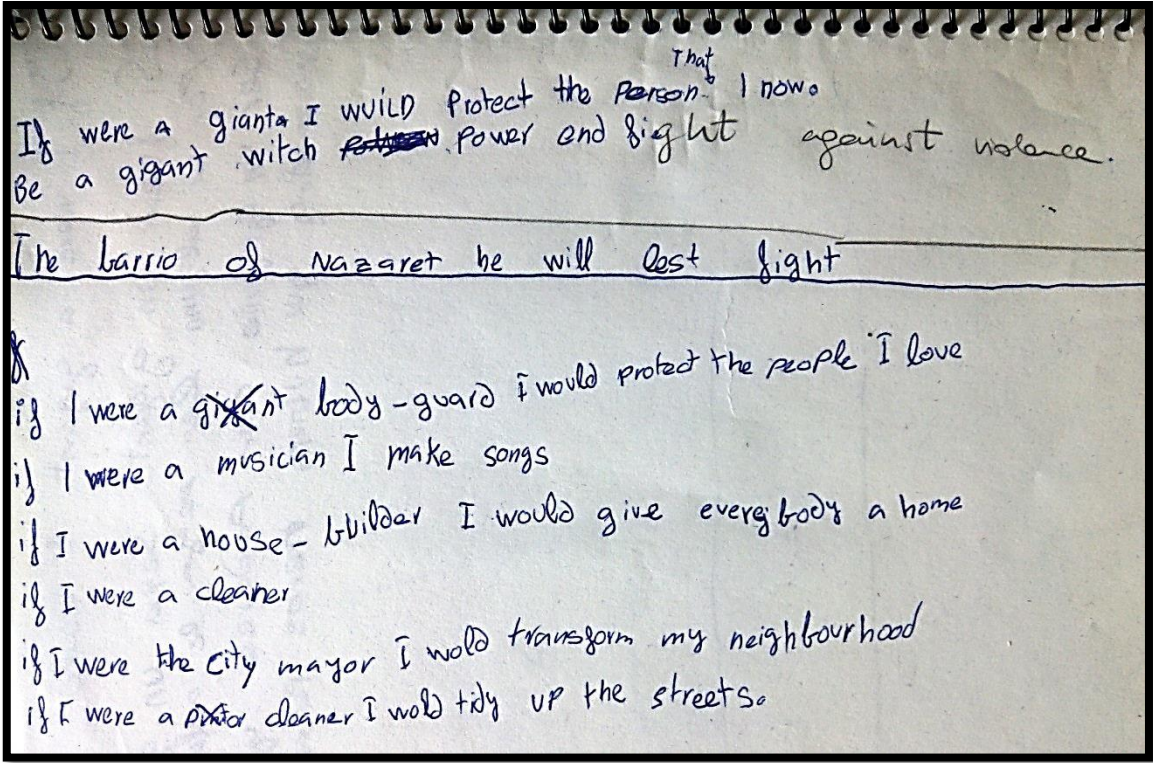 That
If were a giant I WUILD Protect the Person I now.
Be a gigant witch Power end fight against violence.
The barrio of Nazaret he will lost fight
if I were a gigant body-guard I would protect the people I love
if I were a musician I make songs
if I were a house-builder I would give everybody a home
if I were a cleaner
if I were the city mayor I wold transform my neighbourhood
if I were a pintor cleaner I wold tidy up the streets.